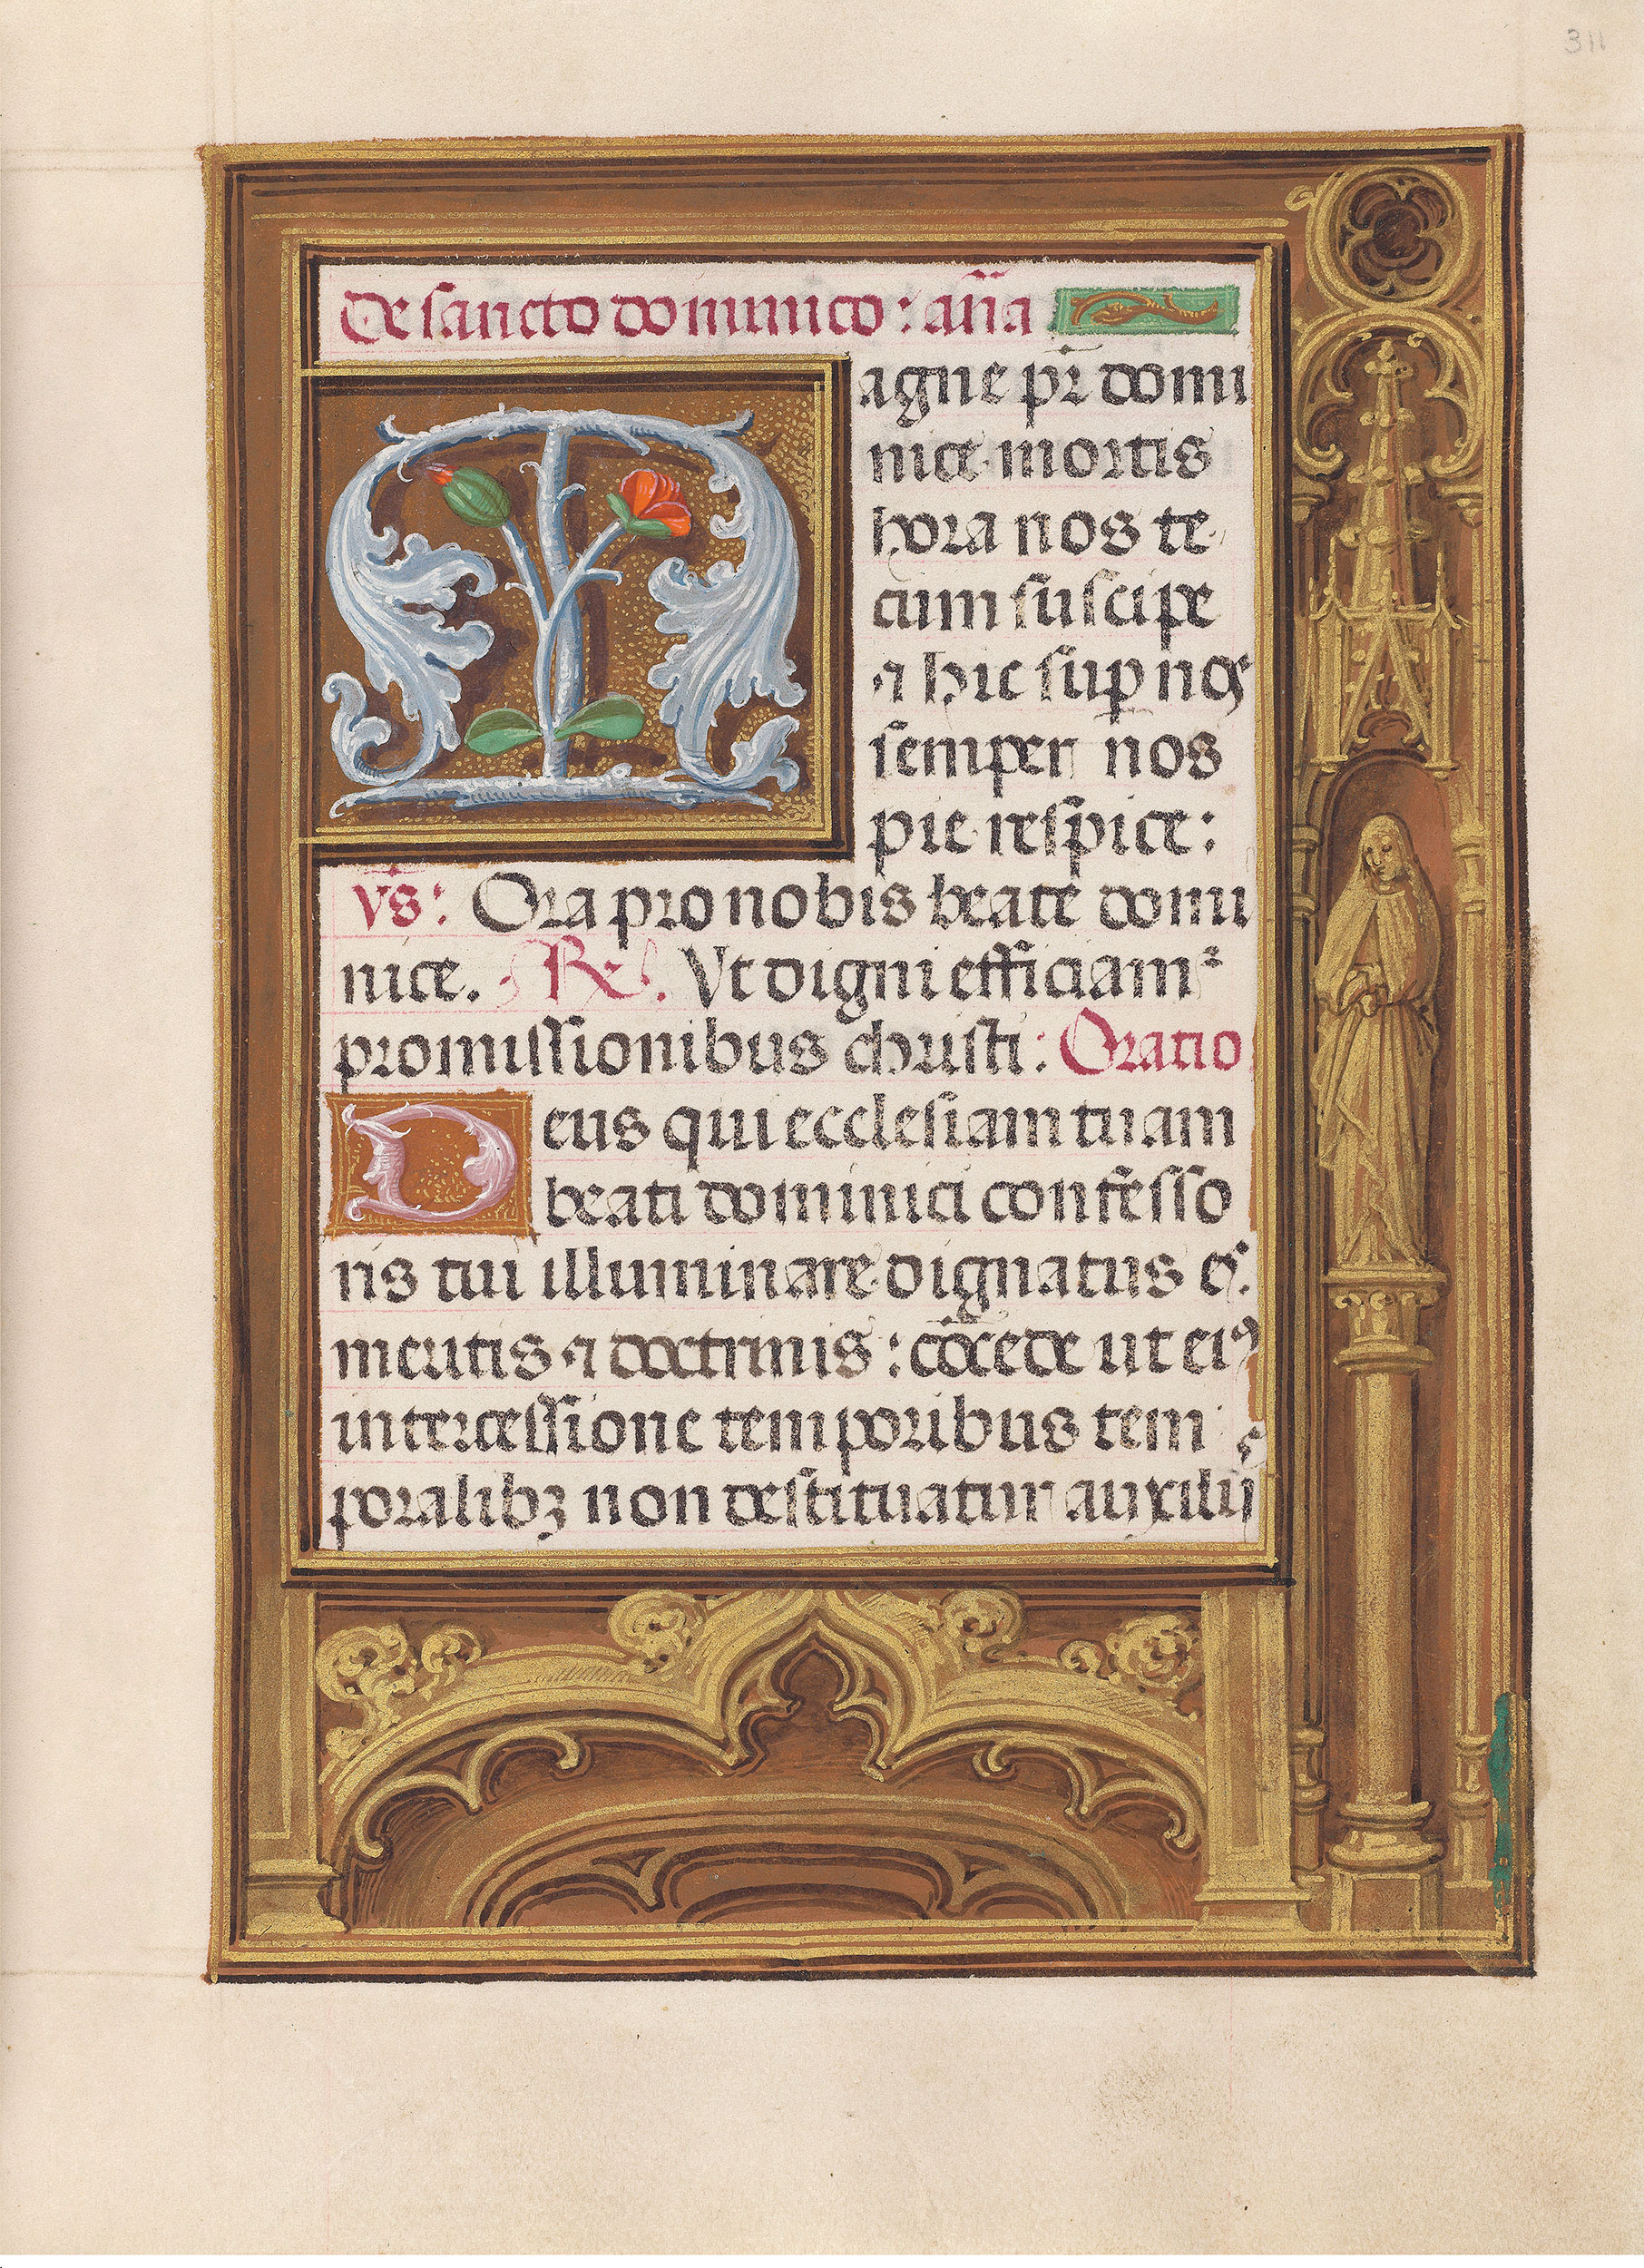 311
De sancto dominico : an̄a
Magne pr̄ domi
nice mortis
hora nos te
cum suscipe
⁊ hic sup nos
semper nos
pie respice :
vs̄ : Ora pro nobis beate domi
nice . R̷ . Vt digni efficiamᵘ
promissionibus christi : Oratio
Deus qui ecclesiam tuam
beati dominici confesso
ris tui illuminare dignatus es .
meritis ⁊ doctrinis : cōcede ut eiꝰ
intercessione temporibus tem
poralibꝫ non destituatur auxilijs